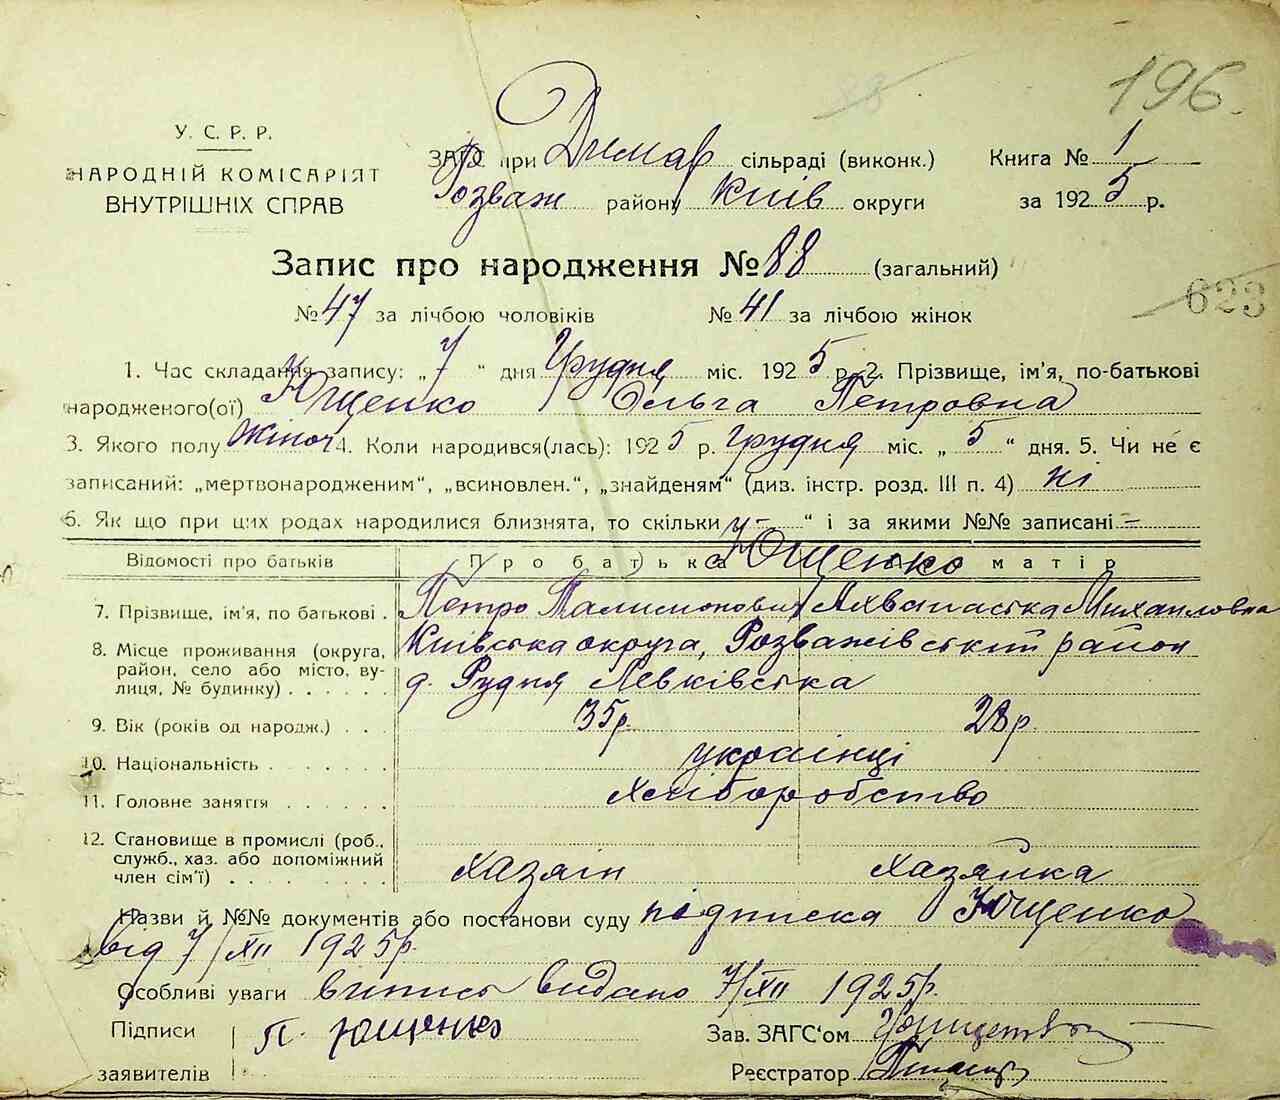 196.
88
У. С. Р. Р.
НАРОДНІЙ КОМІСАРІЯТ
ВНУТРІШНІХ СПРАВ
ЗАГС при Димар сільраді (виконк.)
Розваж району Київ округи
Книга № 1
за 1925 р.
Запис про народження № 88 (загальний)
623
№ 47 за лічбою чоловіків № 41 за лічбою жінок
1. Час складання запису: „7“ дня Грудня міс. 1925 р. 2. Прізвище, ім'я, по-батькові
народженого(ої) Ющенко Ольга Петровна
3. Якого полу жіноч 4. Коли народився(лась): 1925 р. Грудня міс. „5“ дня. 5. Чи не є
записаний: „мертвонародженим“, „всиновлен.“, „знайденям“ (див. інстр. розд. III п. 4) ні
6. Як що при цих родах народилися близнята, то скільки „-“ і за якими №№ записані -
Відомості про батьків Про батька Ющенко матір
7. Прізвище, ім'я, по батькові . Петро Михаиловна
8. Місце проживання (округа, Київська округа, Розважівський район
район, село або місто, ву-
лиця, № будинку) . . . . . . д. Рудня Левківська
9. Вік (років од народж.) . . . 35р. 28р.
10. Національність . . . . . . . українці
11. Головне заняття . . . . . . хліборобство
12. Становище в промислі (роб.,
служб., хаз. або допоміжний
член сім'ї) . . . . . . . . хазяін хазяйка
Назви й №№ документів або постанови суду підписка Ющенко
від 7/XII 1925р.
Особливі уваги випись видано 7/XII 1925р.
Підписи
заявителів
П. Ющенко
Зав. ЗАГС‘ом
Реєстратор